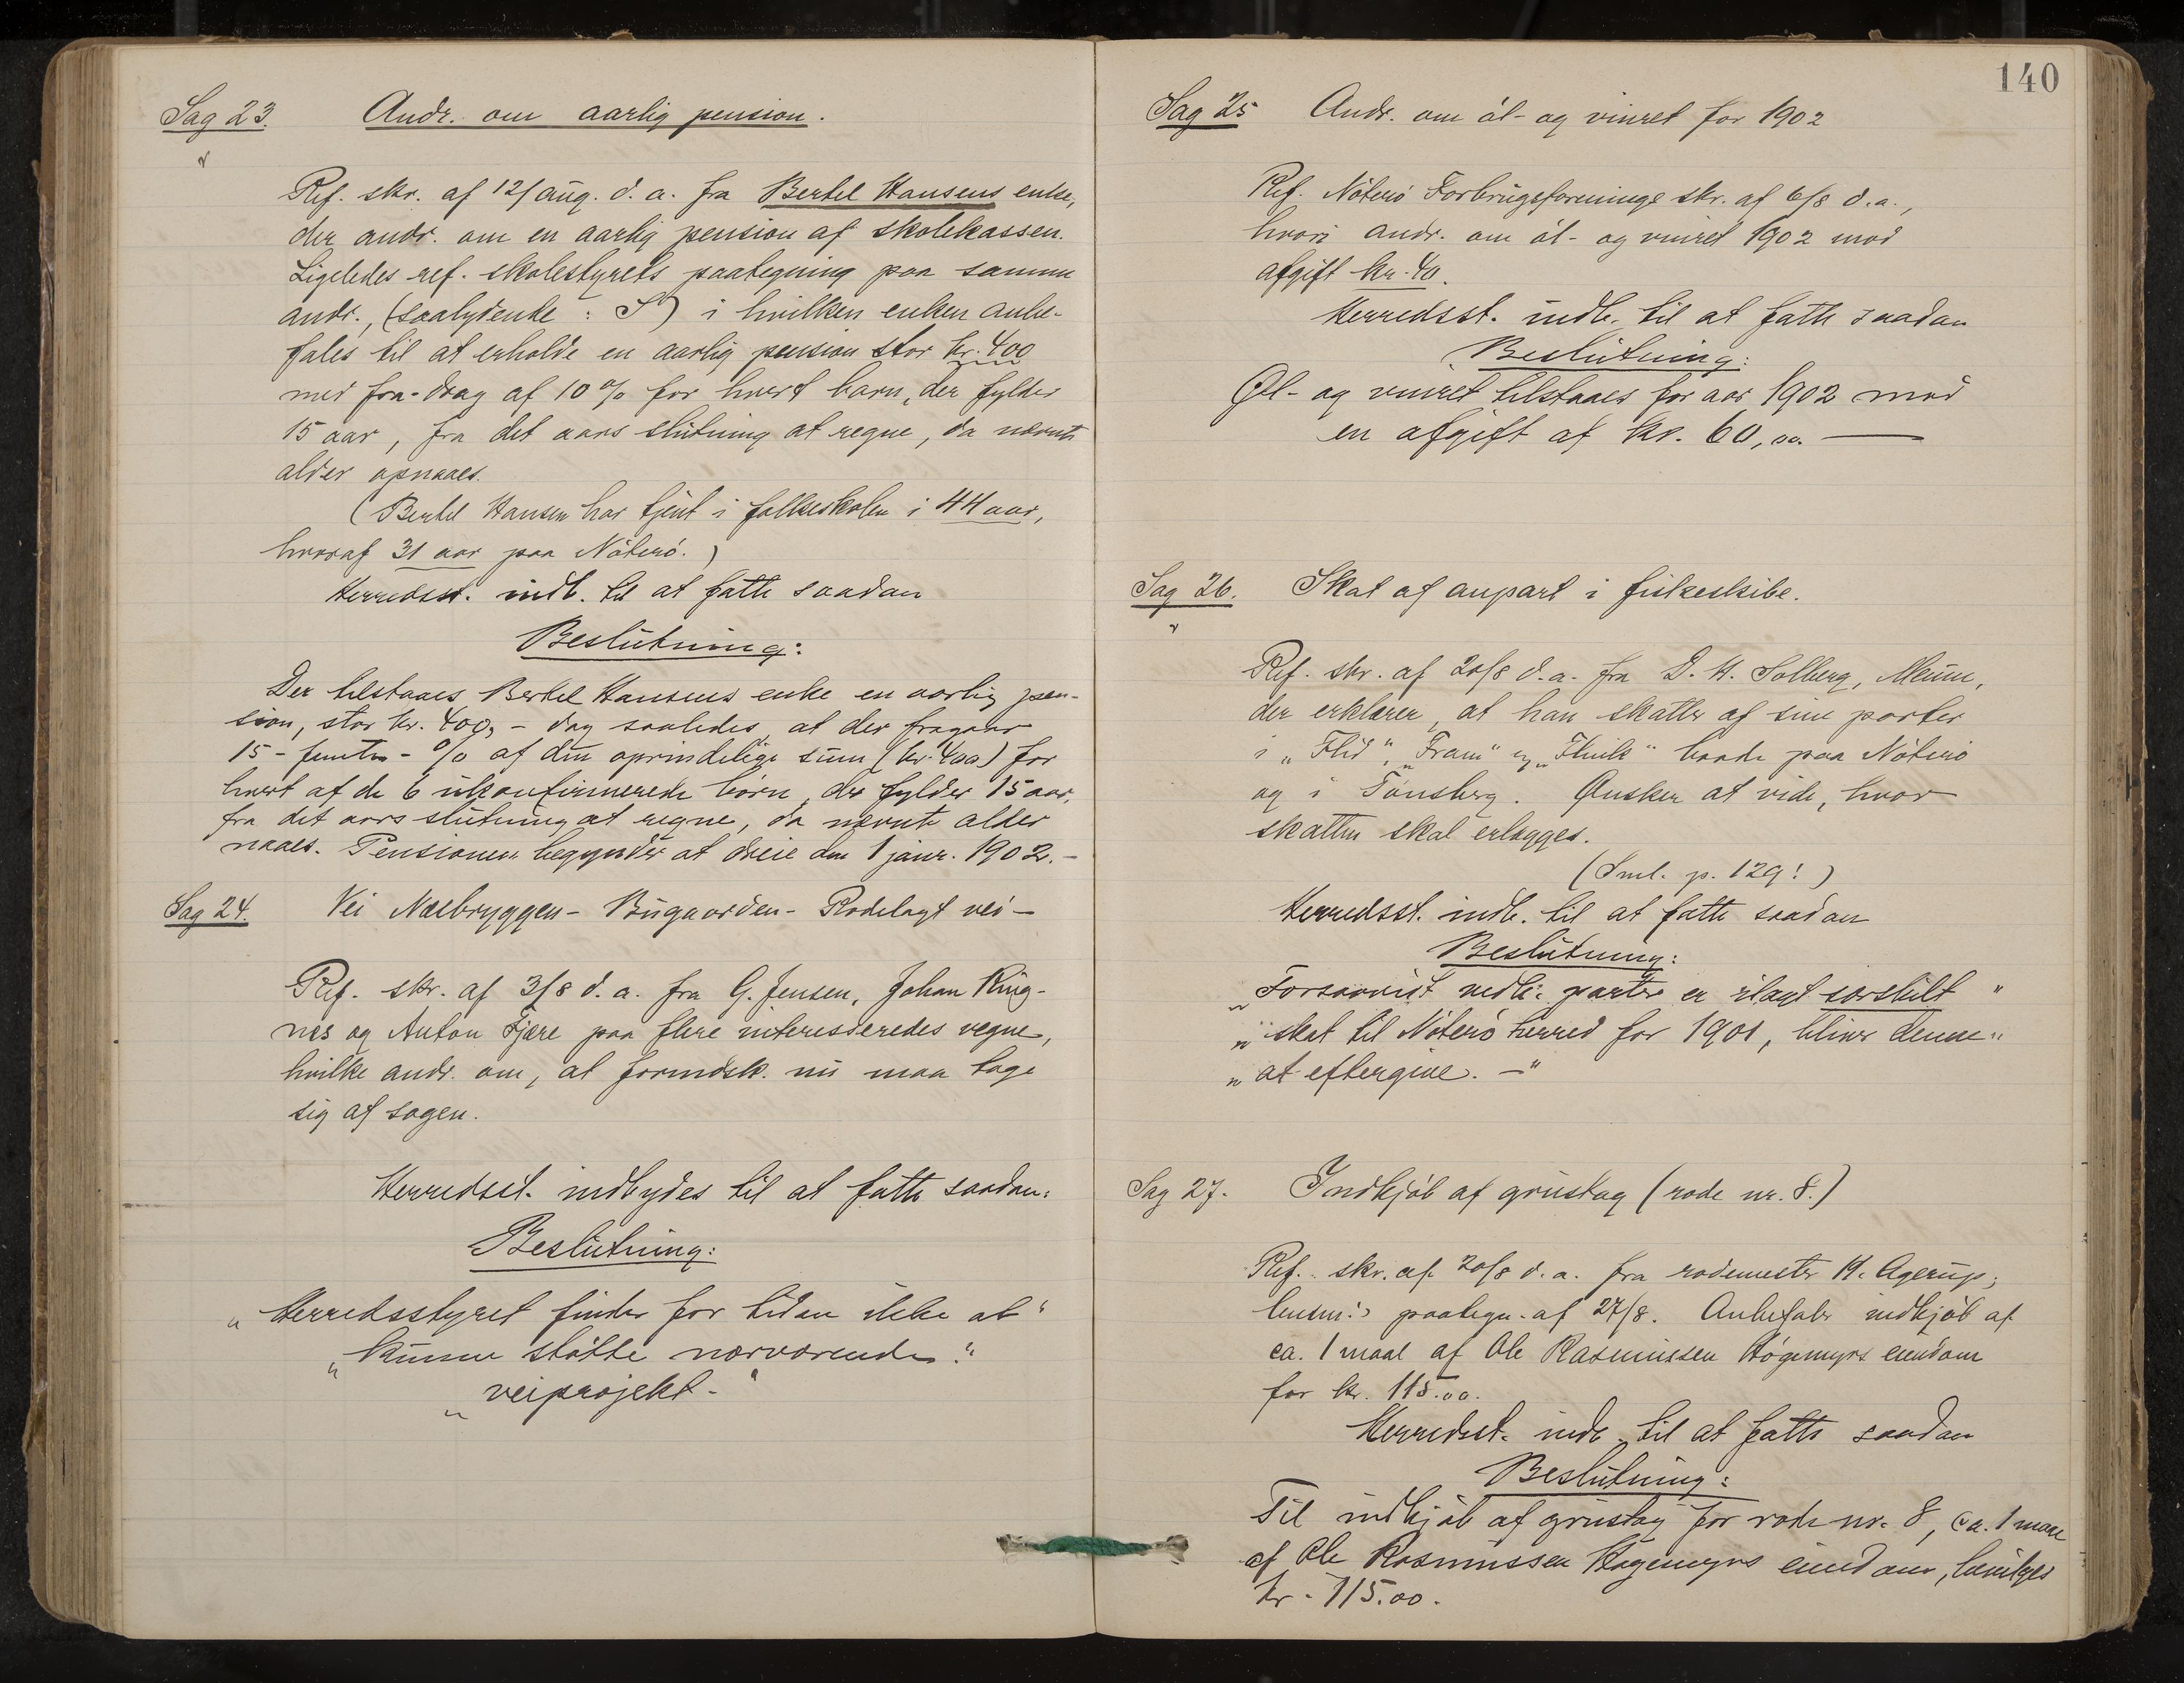 Sag 23. Andr. om aarlig pension.
Ref. skr. af 12/aug. d. a. fra Bertel Hansens enke,
der andr. om en aarlig pension af skolekassen.
Ligeledes ref. skolestyrets paategning paa samme
andr., (saalydende : S) i hvilken enken anbe-
fales til at erholde en aarlig pension stor kr. 400
med fra-drag af 10 % for hvert barn, der fylder
15 aar, fra det aars slutning at regne, da nævnte
alder opnaaes.
(Bertel Hansen har tjent i folkeskolen i 44 aar,
hvoraf 31 aar paa Nøterø.)
Herredsst. indb. til at fatte saadan
Beslutning:
Der tilstaaes Bertel Hansens enke en aarlig pen-
sion, stor kr. 400, - dog saaledes, at der fragaar
15 - femten - % af den oprindelige sum (kr. 400) for
hvert af de 6 ukonfirmerede børn, der fylder 15 aar,
fra det aars slutning at regne, da nævnte alder
naaes. Pensionen begynder at dreie den 1 janr. 1902. -
Sag 24. Vei Næsbryggen - Bugaarden - Rodelagt vei -
Ref. skr. af 3/8 d. a. fra G. Jensen, Johan Ring-
næs og Anton Fjære paa flere interesseredes vegne,
hvilke andr. om, at formdsk. nu maa tage
sig af sagen.
Herredsst. indbydes til at fatte saadan:
Beslutning:
„Herredsstyret finder for tiden ikke at"
„kunne støtte nærværende"
„veiprojekt. -"
140
Sag 25 Andr. om øl- og vinret for 1902
Ref. Nøterø Forbrugsforenings skr. af 6/8 d. a.,
hvori andr. om øl- og vinret 1902 mod
afgift kr. 40.
Herredsst. indb. til at fatte saadan
Beslutning:
Øl- og vinret tilstaaes for aar 1902 mod
en afgift af kr. 60,00. —
Sag 26. Skat af anpart i fiskeskibe.
Ref. skr. af 20/8 d. a. fra D. H. Solberg,
der erklærer, at han skatter af sine parter
i „Flid", „Fram" og baade paa Nøterø
og i Tønsberg. Ønsker at vide, hvor
skatten skal erlægges.
(Sml. p. 129!)
Herredsst. indb. til at fatte saadan
Beslutning:
„Forsaavidt vedk. parter er ilagt særskilt"
„skat til Nøterø herred for 1901, bliver denne"
„at eftergive. -"
Sag 27. Indkjøb af grustag (rode nr. 8.)
Ref. skr. af 20/8 d. a. fra rodemester H. Agerup;
lensm:s paategn. af 27/8. Anbefaler indkjøb af
ca. 1 maal af Ole Rasmussen Høgemyrs eiendom
for kr. 115.00.
Herredsst. indb. til at fatte saadan
Beslutning:
Til indkjøb af grustag for rode nr. 8, ca. 1 maal
af Ole Rasmussen Høgemyrs eiendom, bevilges
kr. 115.00.